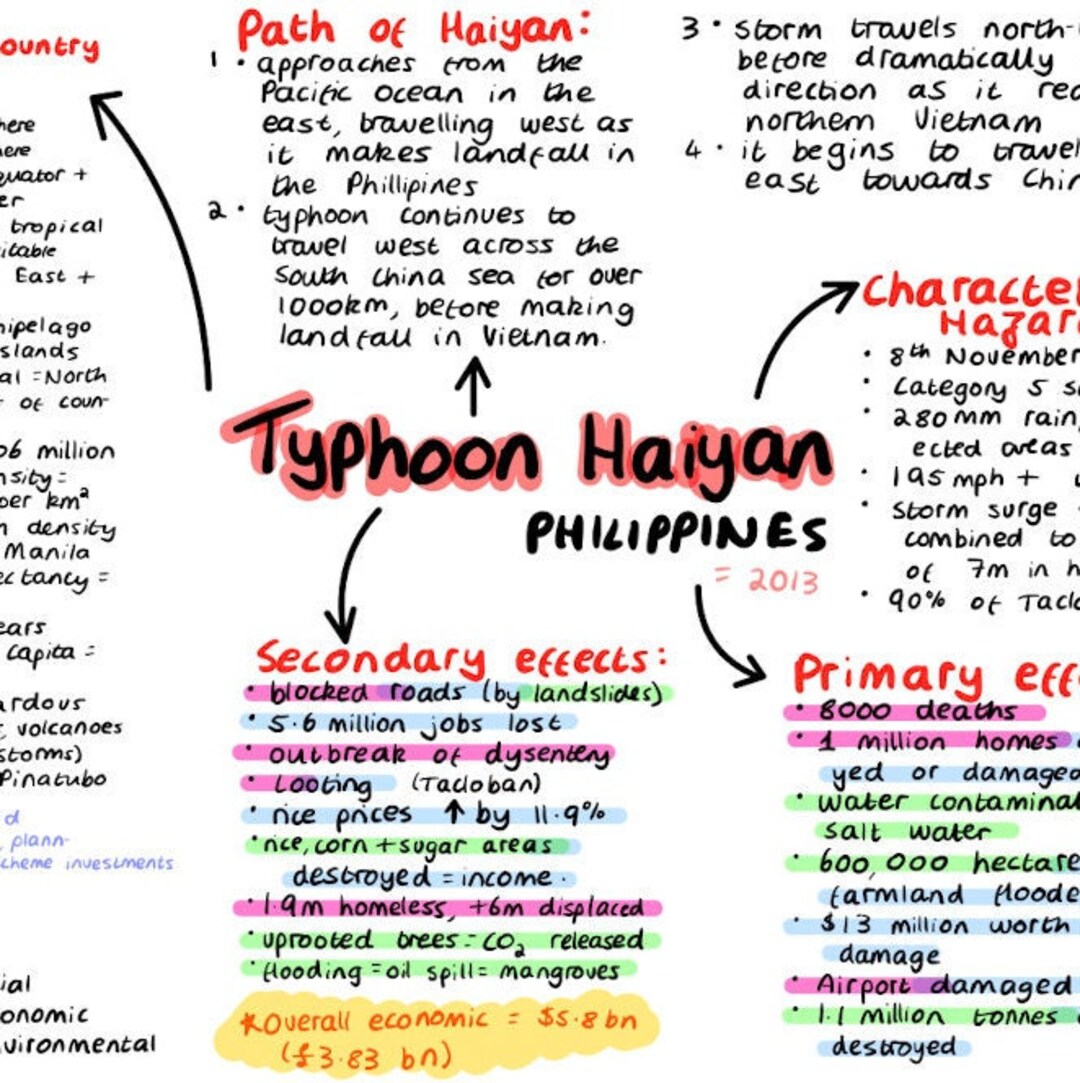 ountry
here
here
equator +
er
tropical
itable
East +
hipelago
slands
al = North
of coun-
06 million
nsity =
per km²
n density
Manila
ectancy =
ears
capita =
ardous
volcanoes
storms)
Pinatubo
d
plann-
cheme investments
ial
onomic
vironmental
Path of Haiyan:
1 • approaches from the
Pacific ocean in the
east, travelling west as
it makes landfall in
the Phillipines
2 • typhoon continues to
travel west across the
South China sea for over
1000km, before making
landfall in Vietnam.
3 • Storm travels north-
before dramatically
direction as it rea
northern Vietnam
4 • it begins to travel
east towards Chin
Typhoon Haiyan
PHILIPPINES
= 2013
Character
Hazar
• 8th November
• Category 5 s
• 280mm rain,
ected areas
• 195mph +
• Storm surge
combined to
of 7m in h
• 90% of Taclo
Secondary effects:
• blocked roads (by landslides)
• 5.6 million jobs lost
• outbreak of dysentery
• Looting (Tacloban)
• rice prices ↑ by 11.9%
• rice, corn + sugar areas
destroyed = income.
• 1.9m homeless, +6m displaced
• uprooted trees = CO₂ released
• flooding = oil spill = mangroves
*Overall economic = $5.8bn
(£3.83 bn)
Primary eff
• 8000 deaths
• 1 million homes
yed or damaged
• water contaminat
salt water
• 600,000 hectare
farmland floode
• $13 million worth
damage
• Airport damaged
• 1.1 million tonnes
destroyed